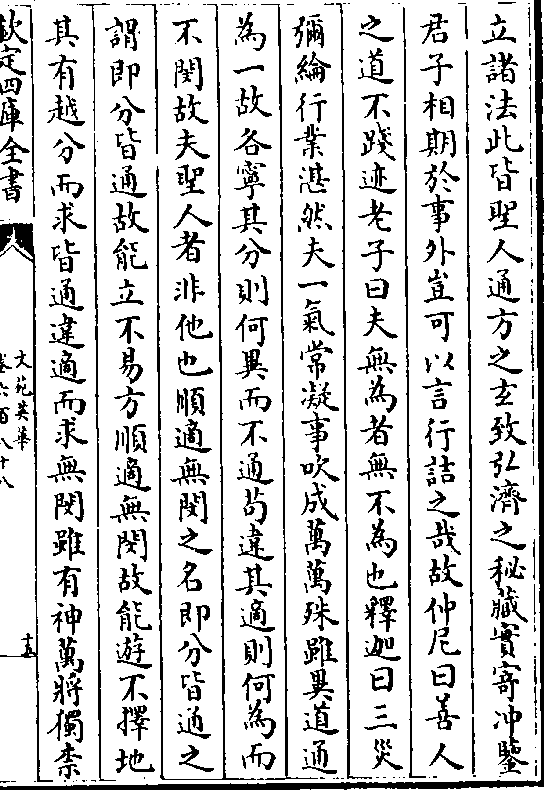 立諸法此皆聖人通方之玄致弘濟之秘藏實寄冲鑒
君子相期於事外豈可以言行詰之哉故仲尼曰善人
之道不踐迹老子曰夫無為者無不為也釋迦曰三災
彌綸行業湛然夫一氣常凝事吹成萬萬殊雖異道通
為一故各寧其分則何異而不通苟違其適則何為而
不閡故夫聖人者非他也順適無閡之名即分皆通之
謂即分皆通故能立不易方順適無閡故能遊不擇地
其有越分而求皆通違適而求無閡雖有神萬將獨柰
欽定四庫全書
文苑英華
卷六百八十八
十五